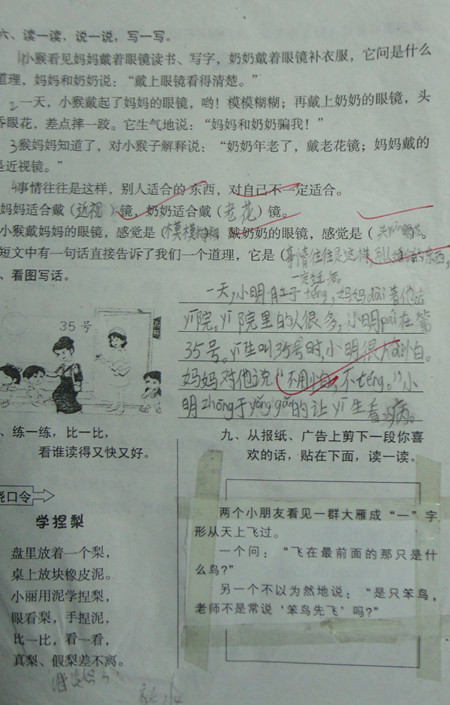 六、读一读，说一说，写一写。
1小猴看见妈妈戴着眼镜读书、写字，奶奶戴着眼镜补衣服，它问是什么
道理，妈妈和奶奶说：“戴上眼镜看得清楚。”
2一天，小猴戴起了妈妈的眼镜，哟！模模糊糊；再戴上奶奶的眼镜，头
昏眼花，差点摔一跤。它生气地说：“妈妈和奶奶骗我！”
3猴妈妈知道了，对小猴子解释说：“奶奶年老了，戴老花镜；妈妈戴的
是近视镜。”
4事情往往是这样，别人适合的东西，对自己不一定适合。
妈妈适合戴（近视）镜，奶奶适合戴（老花）镜。
小猴戴妈妈的眼镜，感觉是（模模糊糊）戴奶奶的眼镜，感觉是（
短文中有一句话直接告诉了我们一个道理，它是（事情往往是这样，别人适合的东西，
、看图写话。
35号
一天，小明肚子téng，妈妈dài着他去
yī院。yī院里的人很多，小明pái在第
35号。yī生叫35号时，小明很
妈妈对他说“不用怕，不téng。”小
明zhōng于yǒng gǎn的让yī生看病。
、练一练，比一比，
看谁读得又快又好。
绕口令
学捏梨
盘里放着一个梨，
桌上放块橡皮泥。
小丽用泥学捏梨，
眼看梨，手捏泥，
比一比，看一看，
真梨、假梨差不离。
九、从报纸、广告上剪下一段你喜
欢的话，贴在下面，读一读。
两个小朋友看见一群大雁成“一”字
形从天上飞过。
一个问：“飞在最前面的那只是什
么鸟？”
另一个不以为然地说：“是只笨鸟，
老师不是常说‘笨鸟先飞’吗？”